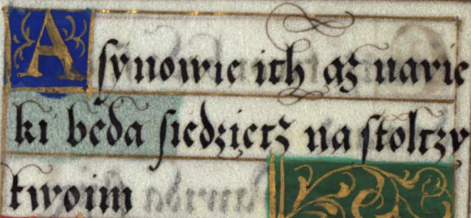 A synowie ich aż nawie
ki będa siedzieć na stolczy
twoim